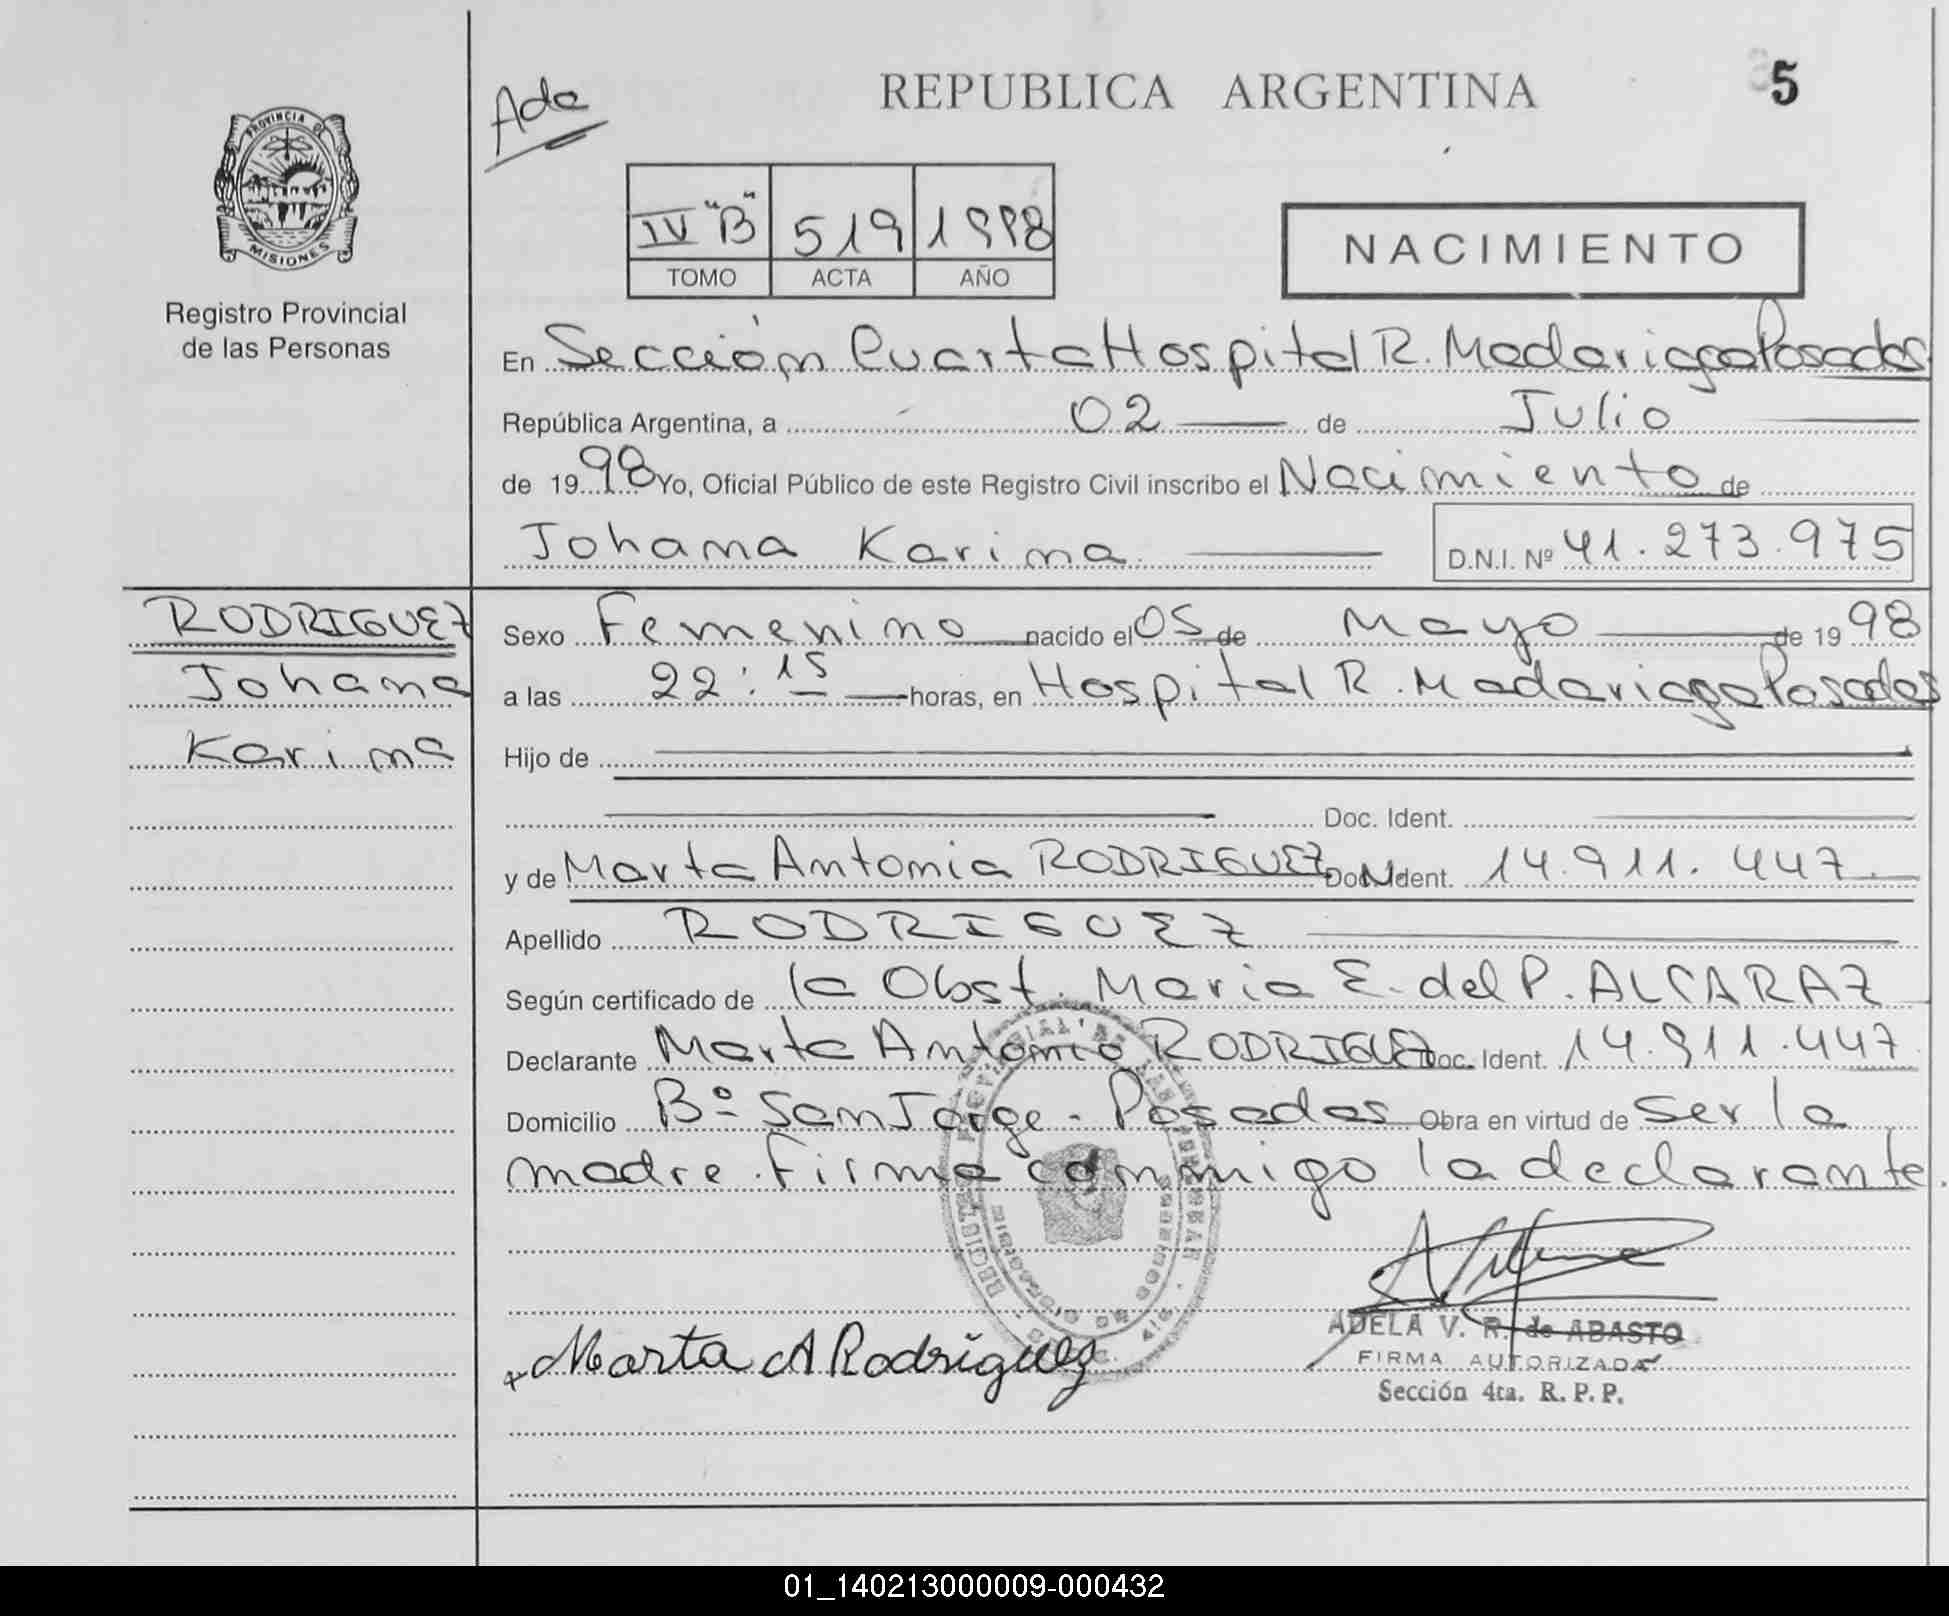 Ada
REPUBLICA ARGENTINA
5
PROVINCIA DE
MISIONES
Registro Provincial
de las Personas
IV "B" 519 1998
TOMO ACTA AÑO
NACIMIENTO
En Sección Cuarta Hospital R. Madariaga Posadas
República Argentina, a 02 de Julio
de 1998 Yo, Oficial Público de este Registro Civil inscribo el Nacimiento de
Johana Karina D.N.I. Nº 41.273.975
RODRIGUEZ
Johana
Karina
Sexo Femenino nacido el 05 de Mayo de 1998
a las 22:15 horas, en Hospital R. Madariaga Posadas
Hijo de
Doc. Ident.
y de Marta Antonia RODRIGUEZ Doc. Ident. 14.911.447.
Apellido RODRIGUEZ
Según certificado de la Obst. Maria E. del P. ALCARAZ
Declarante Marta Antonia RODRIGUEZ Doc. Ident. 14.911.447.
Domicilio Bº San Jorge - Posadas Obra en virtud de Ser la
madre. Firma conmigo la declarante.
Marta A Rodriguez
ADELA V. R. de ABASTO
FIRMA AUTORIZADA
Sección 4ta. R.P.P.
01_140213000009-000432